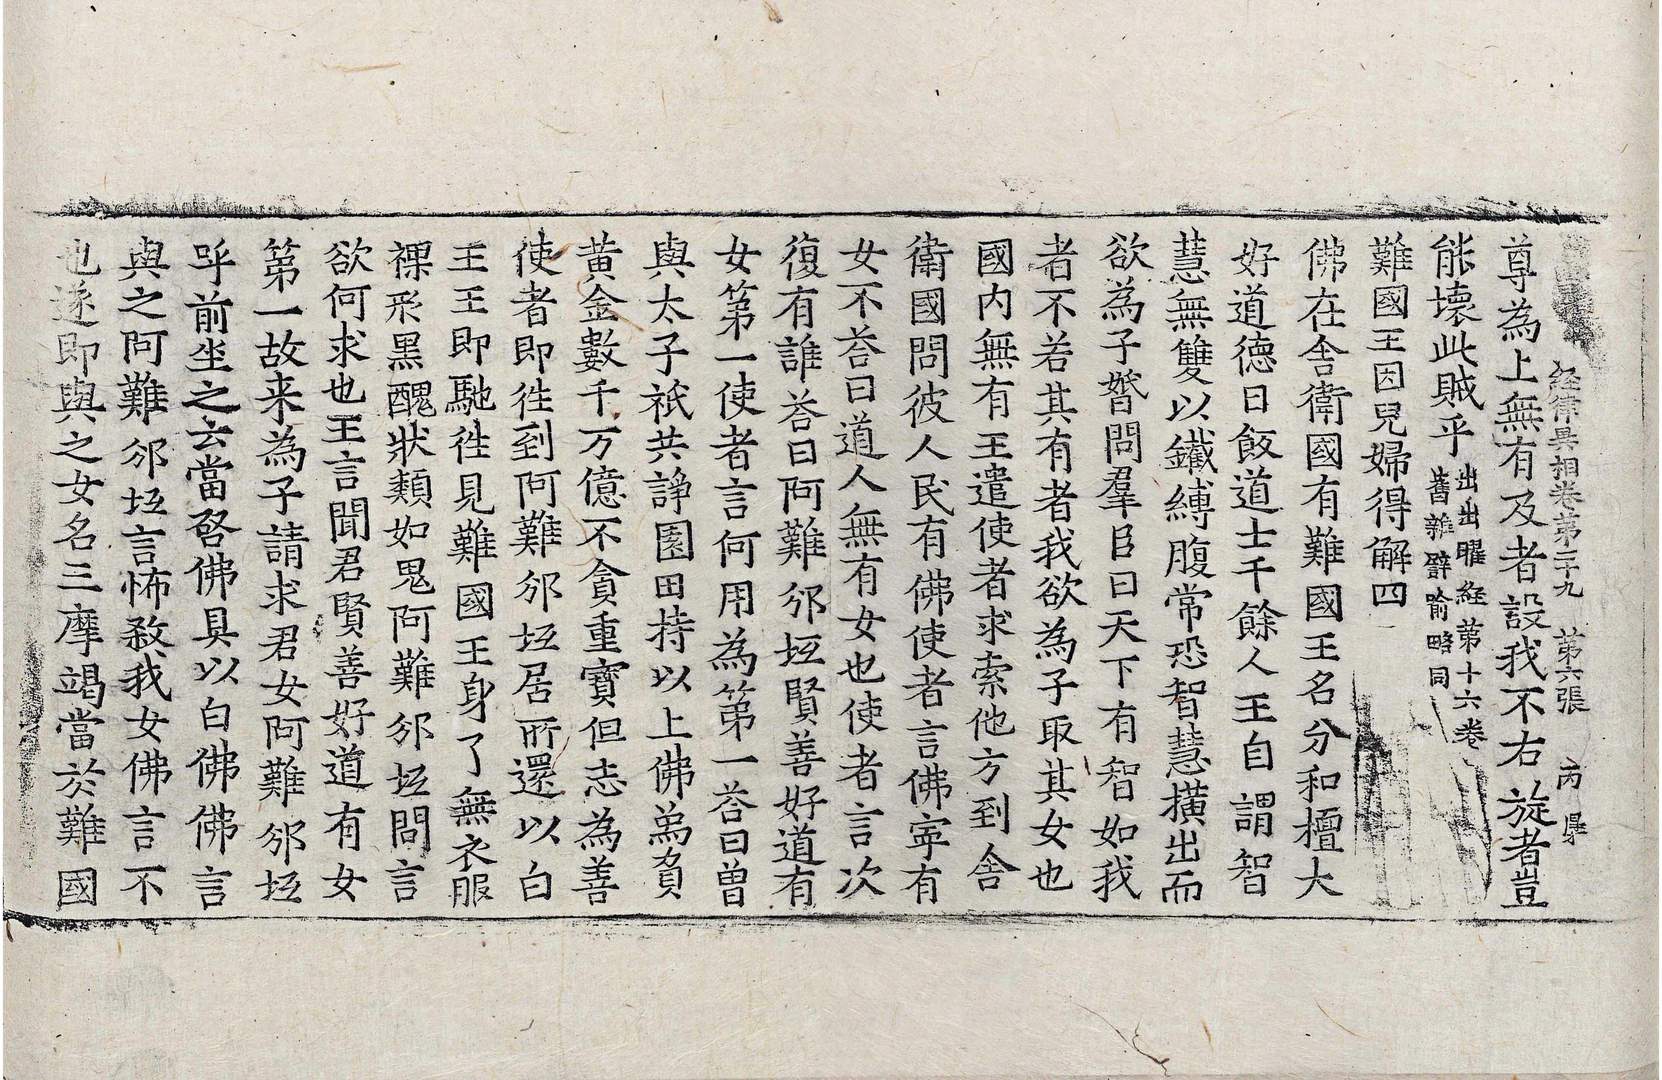 経律異相卷第二十九　第六張　丙
尊為上無有及者設我不右旋者豈
能壞此賊乎出出曜経第十六卷
舊雜譬喻略同
難國王因兒婦得解四
佛在舍衛國有難國王名分和檀大
好道德日飯道士千餘人王自謂智
慧無雙以鐵縛腹常恐智慧橫出而
欲為子婚問羣臣曰天下有智如我
者不若其有者我欲為子取其女也
國內無有王遣使者求索他方到舍
衛國問彼人民有佛使者言佛寧有
女不荅曰道人無有女也使者言次
復有誰荅曰阿難邠坻賢善好道有
女第一使者言何用為第一荅曰曽
與太子祇共諍園田持以上佛為貧
黃金數千万億不貪重寶但志為善
使者即徃到阿難邠坻居所還以白
王王即馳徃見難國王身了無衣服
裸形黑醜狀類如鬼阿難邠坻問言
欲何求也王言聞君賢善好道有女
第一故来為子請求君女阿難邠坻
呼前坐之云當啓佛具以白佛佛言
與之阿難邠坻言怖殺我女佛言不
也遂即與之女名三摩竭當於難國